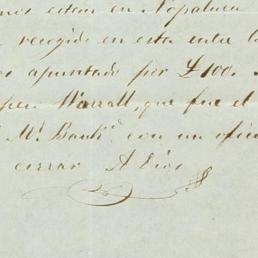 estan en Nopaluca
recogido en esta
apuntado por £100.
Warrall, que fue el
Mr. Bank con un
cerrar A Dios